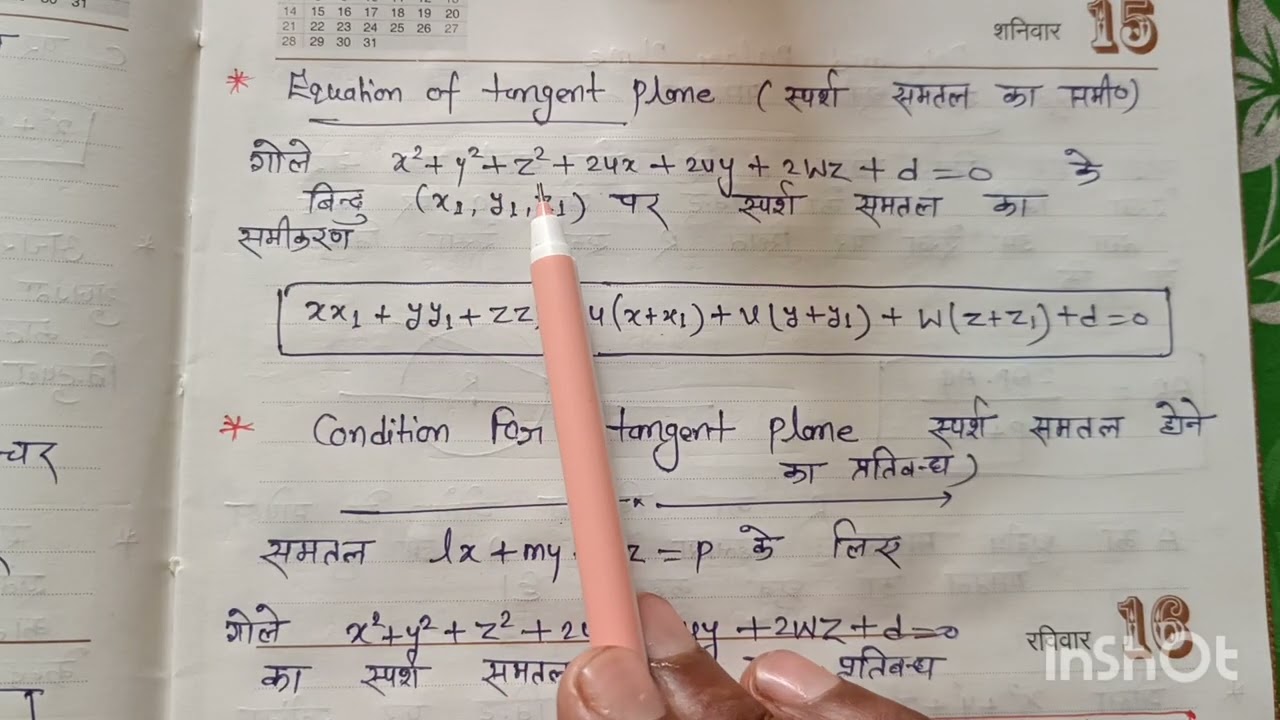 14 15 16 17 18 19 20
21 22 23 24 25 26 27
28 29 30 31
शनिवार 15
* Equation of tangent plane (स्पर्श समतल का समी०)
गोले x²+y²+z²+2ux+2vy+2wz+d=0 के
बिन्दु (x₁, y₁, z₁) पर स्पर्श समतल का
समीकरण
xx₁ + yy₁ + zz u(x+x₁)+v(y+y₁) + w(z+z₁)+d=0
* Condition for tangent plane स्पर्श समतल होने
का प्रतिबन्ध)
समतल lx+my z=p के लिए
गोले x²+y²+z²+2u vy+2wz+d=0
रविवार 16
का स्पर्श समतल प्रतिबन्ध
InShOt